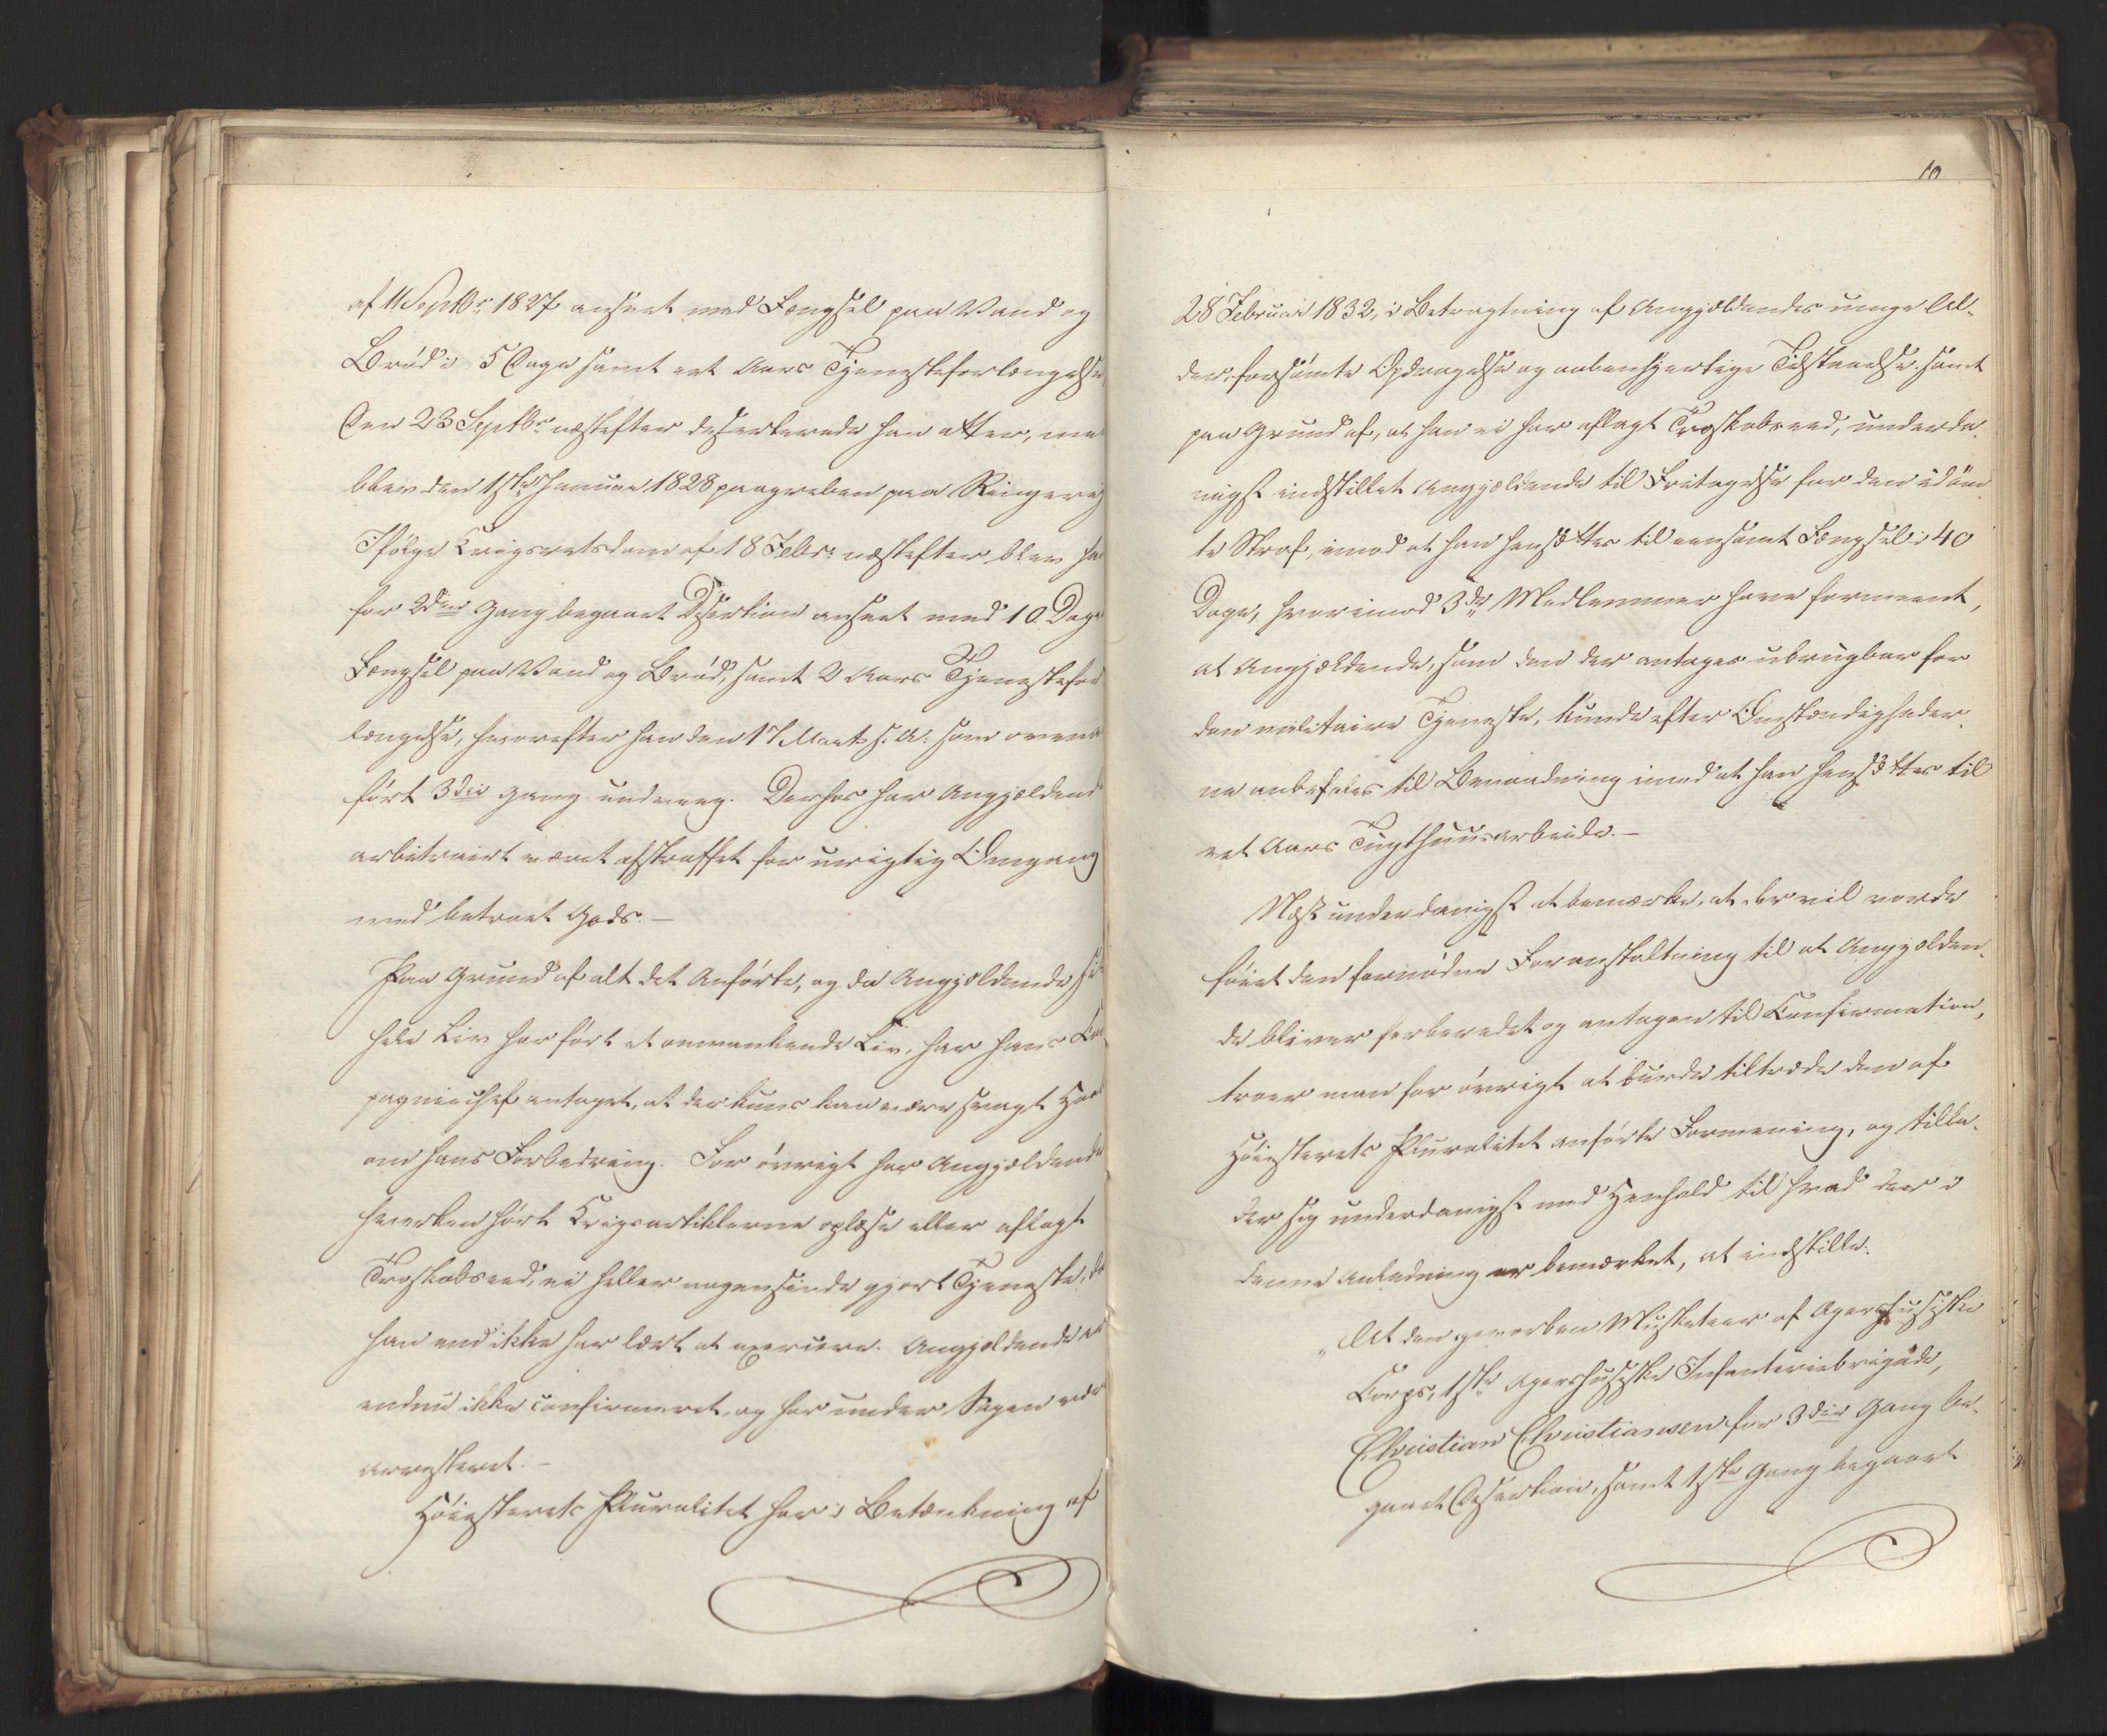 af 11 Septbr: 1827 anseet med Fængsel paa Vand og
Brød i 5 Dage samt eet Aars Tjenesteforlængelse
Den 23 Septbr: næstefter deserterede han atter, me
blev den 1ste Januar 1828 paagreben paa Ringerig
Ifølge Krigsretsdom af 18 Febr: næstefter blev ha
for 2den Gang begaaet Desertion anseet med 10 Dage
Fængsel paa Vand og Brød, samt 2 Aars Tjenestefor
længelse, hvorefter han den 17 Marts s. A. som oven
ført 3die Gang undveeg. Derhos har Angjældende
arbitrairt været afstraffet for urigtig Omgang
med betroet Gods. —
Paa Grund af alt det Anførte, og da Angjældende si
hele Liv har ført et omvankende Liv, har hans Com
pagniechef antaget, at der kuns kan være svagt Haab
om hans Forbedring. For øvrigt har Angjældende
hverken hørt Krigsartiklerne oplæse eller aflagt
Troskabseed, ei heller nogensinde gjort Tjeneste, da
han end ikke har lært at exercere. Angjældende er
endnu ikke confirmeret, og har under Sagen vær
arresteret. —
Høiesterets Pluralitet har i Betænkning af
10
28 Februar 1832, i Betragtning af Angjældendes unge Al-
der, forsømte Opdragelse og aabenhjertige Tilstaaelse samt
paa Grund af, at han ei har aflagt Troskabseed, underda-
nigst indstillet Angjældende til Fritagelse for den idøm-
te Straf, imod at han hensættes til eensomt Fængsel i 40
Dage, hvorimod 3de Medlemmer have formeent,
at Angjældende, som den der antages ubrugbar for
den militaire Tjeneste, kunde efter Omstændigheder-
ne anbefales til Benaadning imod at han hensættes til
eet Aars Tugthuusarbeide. —
Næst underdanigst at bemærke, at der vil vorde
føiet den fornødne Foranstaltning til at Angjælden-
de bliver forberedet og antagen til Confirmation,
troer man for øvrigt at burde tiltræde den af
Høiesterets Pluralitet anførte Formening, og tilla-
der sig underdanigst med Henhold til hvad der i
denne Anledning er bemærket, at indstille:
„At den gevorben Musketeer af Agershusiske
Corps, 1ste Agershusiske Infanteriebrigade,
Christian Christiansen for 3die Gang be-
gaaet Desertion, samt 1ste Gang begaaet